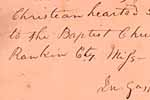 Christian hearted
to the Baptist Chu
Rankin City. Miss-